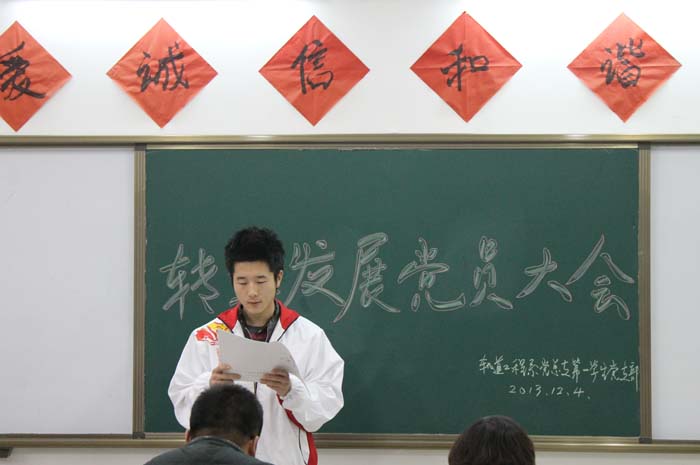 爱 诚 信 和 谐
转正发展党员大会
轨道工程系党总支第一学生党支部
2013.12.4.